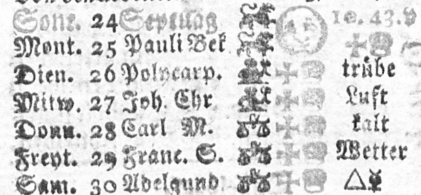 Sont. 24 Septuag 10. 43. v
Mont. 25 Pauli Bek
Dien. 26 Polycarp. trübe
Mitw. 27 Joh. Chr Luft
Donn. 28 Carl M. kalt
Freyt. 29 Franc. S. Wetter
Sam. 30 Adelgund